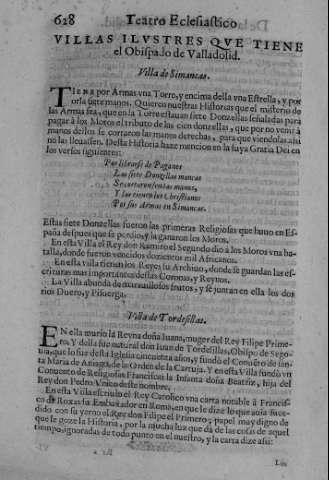 628 Teatro Eclesiastico
VILLAS ILVSTRES QVE TIENE
el Obispado de Valladolid.
Villa de Simancas.
TIENE por Armas vna Torre, y encima della vna Estrella, y por
orla siete manos. Quieren nuestras Historias que el misterio de
las Armas sea, que en la Torre estauan siete Donzellas señaladas para
pagar à los Moros el tributo de las cien donzellas, que por no venir à
manos dellos se cortaron las manos derechas, para que viendolas assi
no las lleuassen. Desta Historia haze mencion en la suya Gratia Dei en
los versos siguientes:
Por librarse de Paganos
Las siete Donzellas mancas
Se cortaron sentas manos,
Y las tienen los Christianos
Por sus Armas en Simancas.
Estas siete Donzellas fueron las primeras Religiosas que huuo en Es-
paña despues que se perdio, y la ganaron los Moros.
En esta Villa el Rey don Ramiro el Segundo dio à los Moros vna ba-
talla, donde fueron vencidos dozientos mil Africanos.
En esta Villa tienen los Reyes su Archiuo, donde se guardan las es-
crituras mas importantes destas Coronas, y Reynos.
La Villa abunda de marauillosos frutos, y se juntan en ella los dos
rios Duero, y Pisuerga.
Villa de Tordesillas.
EN ella murio la Reyna doña Iuana, muger del Rey Filipe Prime-
ro. Y della fue natural don Iuan de Tordesillas, Obispo de Sego-
uia, que lo fue desta Iglesia cincuenta años, y fundò el Conuento de san-
ta Maria de Aniaga, de la Orden de la Cartuja. Y en esta Villa fundò vn
Conuento de Religiosas Franciscas la Infanta doña Beatriz, hija del
Rey don Pedro Vnico deste nombre.
En esta Villa escriuio el Rey Catolico vna carta notable à Francis-
co de Roxas su Embaxador en Roma, en que le dize lo que auia suce-
dido con su yerno el Rey don Filipe el Primero; papel muy digno de
que le goze la Historia, por la mucha luz que dà de las cosas de aquel
tiempo, ignoradas de todo punto en el nuestro, y la carta dize assi: